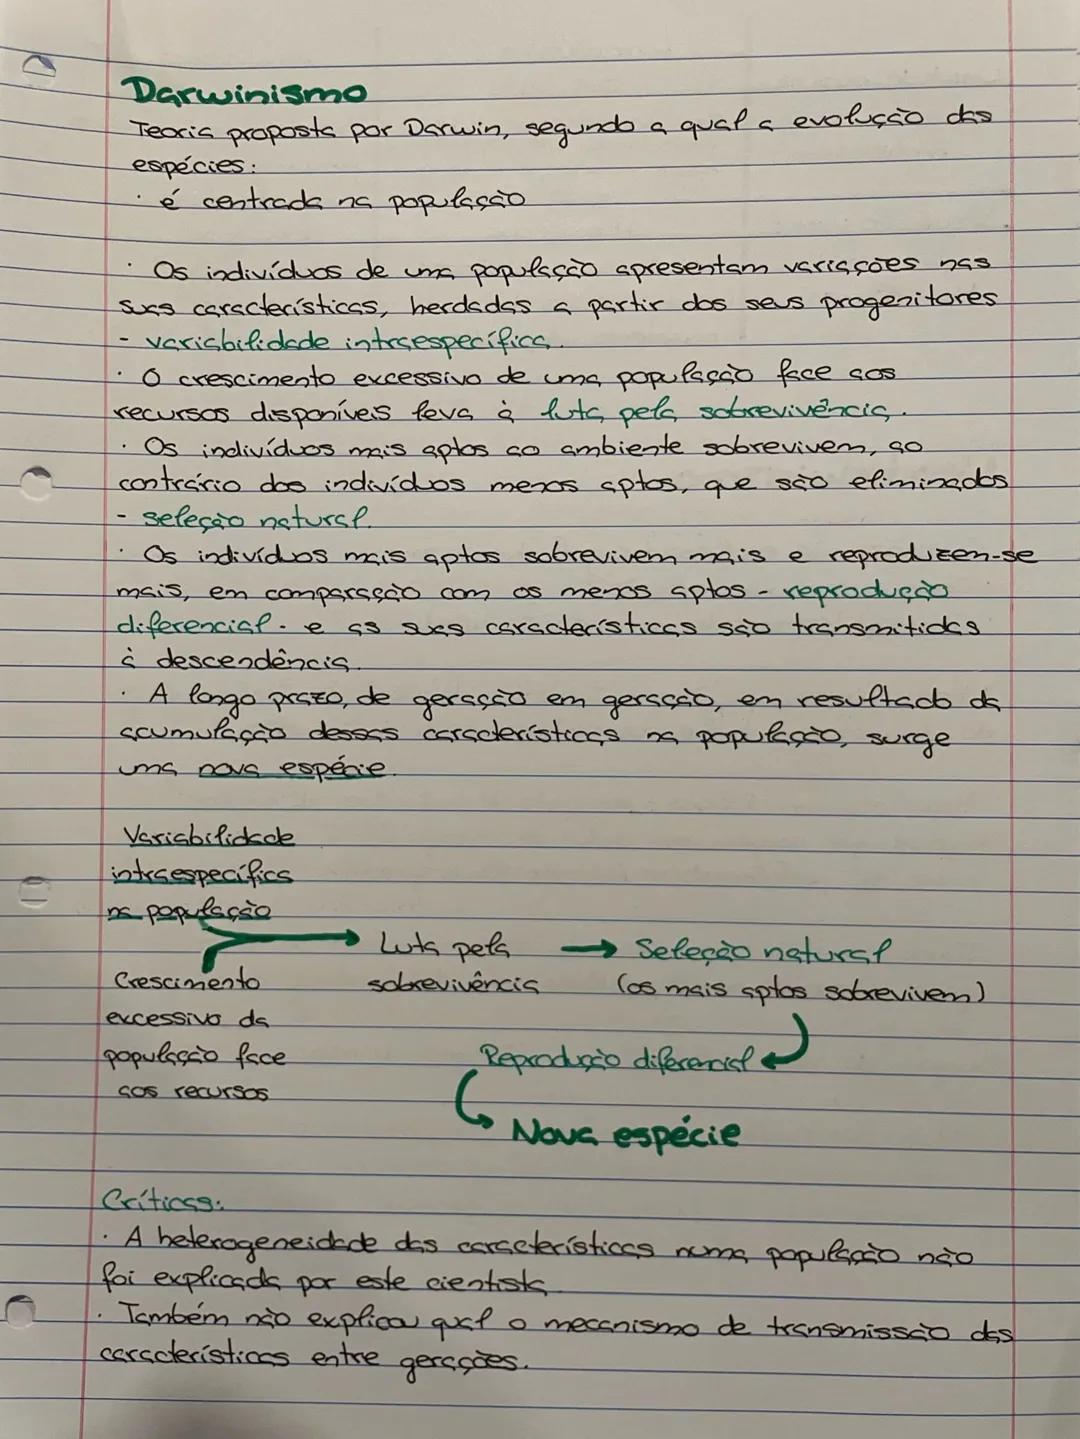 Darwinismo
Teoria proposta por Darwin, segundo a qual a evolução das
espécies:
· é centrada na população
· Os indivíduos de uma população apresentam variações nas
suas características, herdadas a partir dos seus progenitores
- variabilidade intraespecífica.
· O crescimento excessivo de uma população face aos
recursos disponíveis leva à luta pela sobrevivência.
· Os indivíduos mais aptos ao ambiente sobrevivem, ao
contrário dos indivíduos menos aptos, que são eliminados
- seleção natural.
· Os indivíduos mais aptos sobrevivem mais e reproduzem-se
mais, em comparação com os menos aptos - reprodução
diferencial - e as suas características são transmitidas
à descendência.
· A longo prazo, de geração em geração, em resultado da
acumulação dessas características na população, surge
uma nova espécie.
Variabilidade
intraespecífica
na população
→ Luta pela → Seleção natural
Crescimento sobrevivência (os mais aptos sobrevivem)
excessivo da
população face Reprodução diferencial
aos recursos
Nova espécie
Críticas:
· A heterogeneidade das características numa população não
foi explicada por este cientista
· Também não explicou qual o mecanismo de transmissão das
características entre gerações.